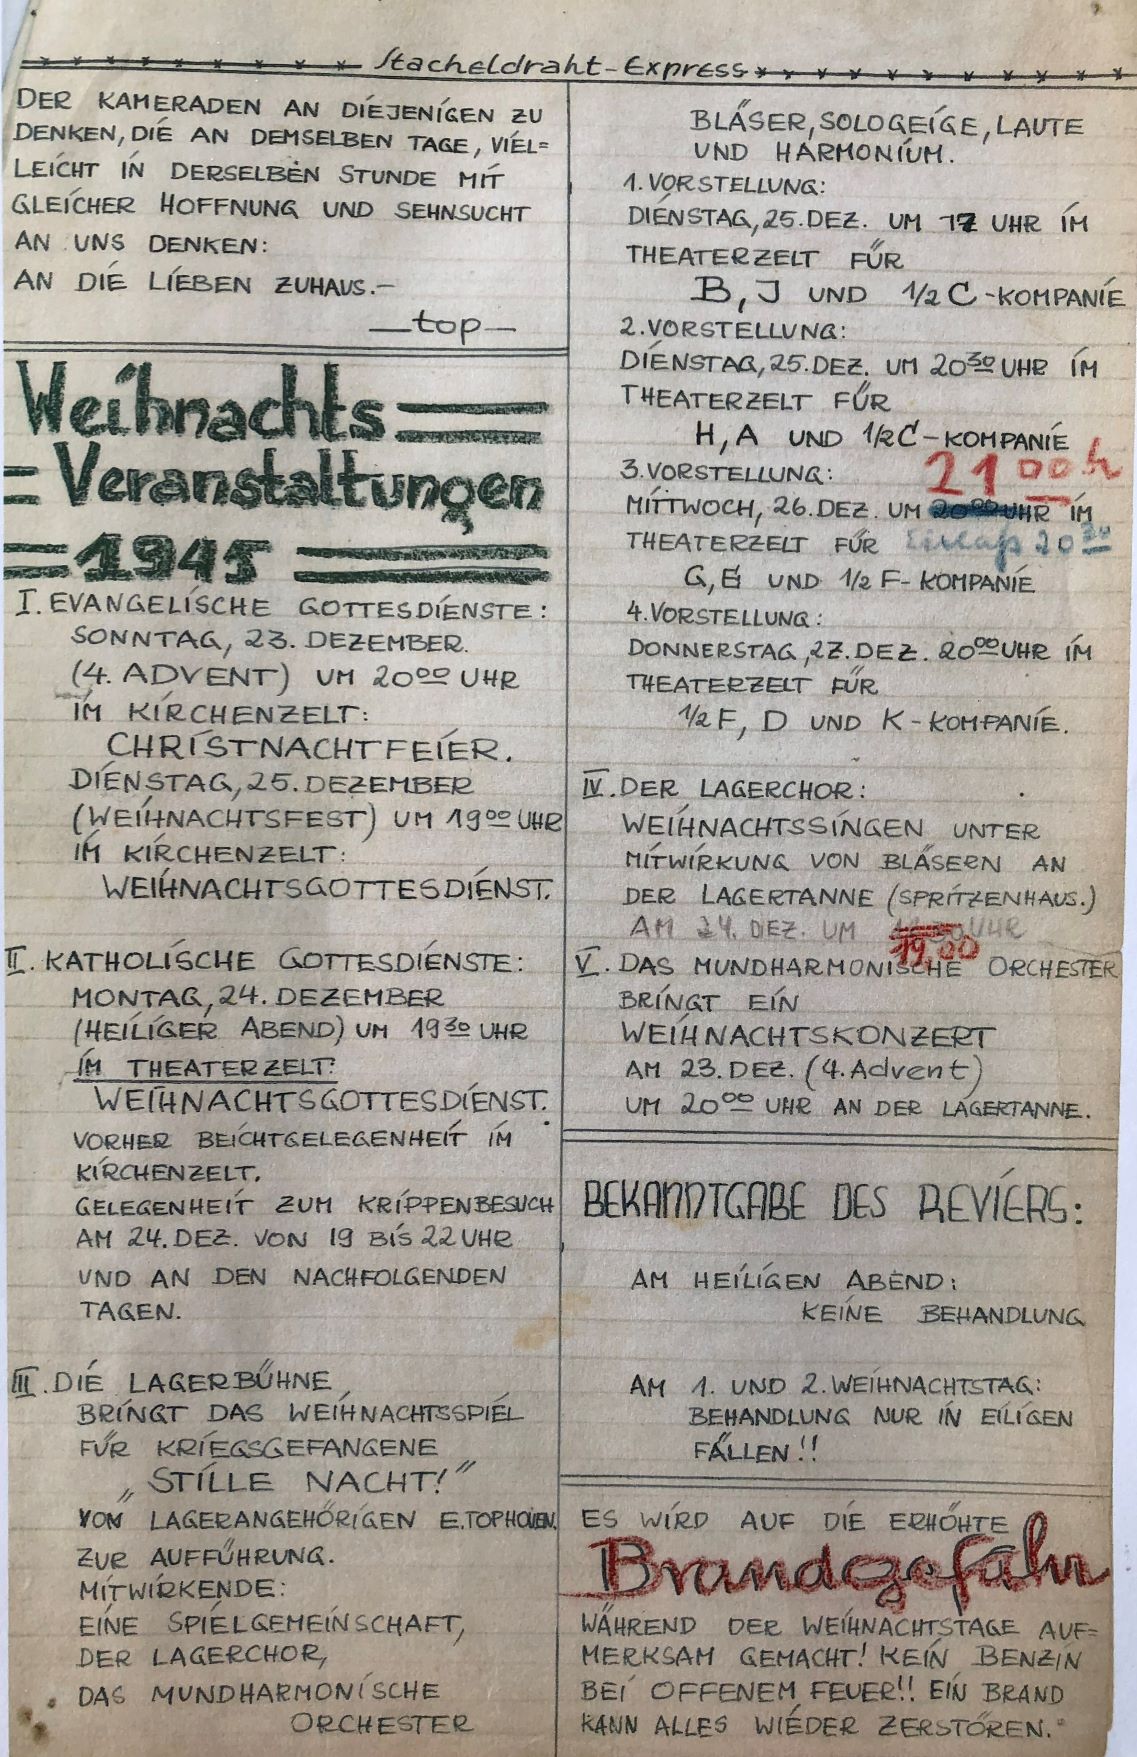 Stacheldraht-Express
DER KAMERADEN AN DIEJENIGEN ZU
DENKEN, DIE AN DEMSELBEN TAGE, VIEL=
LEICHT IN DERSELBEN STUNDE MIT
GLEICHER HOFFNUNG UND SEHNSUCHT
AN UNS DENKEN:
AN DIE LIEBEN ZUHAUS.—
—top—
Weihnachts
Veranstaltungen
1945
I. EVANGELISCHE GOTTESDIENSTE:
SONNTAG, 23. DEZEMBER.
(4. ADVENT) UM 20⁰⁰ UHR
IM KIRCHENZELT:
CHRISTNACHTFEIER.
DIENSTAG, 25. DEZEMBER
(WEIHNACHTSFEST) UM 19⁰⁰ UHR
IM KIRCHENZELT:
WEIHNACHTSGOTTESDIENST.
II. KATHOLISCHE GOTTESDIENSTE:
MONTAG, 24. DEZEMBER
(HEILIGER ABEND) UM 19³⁰ UHR
IM THEATERZELT:
WEIHNACHTSGOTTESDIENST.
VORHER BEICHTGELEGENHEIT IM
KIRCHENZELT.
GELEGENHEIT ZUM KRIPPENBESUCH
AM 24. DEZ. VON 19 BIS 22 UHR
UND AN DEN NACHFOLGENDEN
TAGEN.
III. DIE LAGERBÜHNE
BRINGT DAS WEIHNACHTSSPIEL
FÜR KRIEGSGEFANGENE
„STILLE NACHT!"
VOM LAGERANGEHÖRIGEN E. TOPHOVEN.
ZUR AUFFÜHRUNG.
MITWIRKENDE:
EINE SPIELGEMEINSCHAFT,
DER LAGERCHOR,
DAS MUNDHARMONISCHE
ORCHESTER
BLÄSER, SOLOGEIGE, LAUTE
UND HARMONIUM.
1. VORSTELLUNG:
DIENSTAG, 25. DEZ. UM 17 UHR IM
THEATERZELT FÜR
B, J UND 1/2 C-KOMPANIE
2. VORSTELLUNG:
DIENSTAG, 25. DEZ. UM 20³⁰ UHR IM
THEATERZELT FÜR
H, A UND 1/2 C-KOMPANIE
3. VORSTELLUNG: 21⁰⁰ h
MITTWOCH, 26. DEZ. UM 20⁰⁰ UHR IM
THEATERZELT FÜR Einlaß 20³⁰
G, E UND 1/2 F-KOMPANIE
4. VORSTELLUNG:
DONNERSTAG, 27. DEZ. 20⁰⁰ UHR IM
THEATERZELT FÜR
1/2 F, D UND K-KOMPANIE.
IV. DER LAGERCHOR:
WEIHNACHTSSINGEN UNTER
MITWIRKUNG VON BLÄSERN AN
DER LAGERTANNE (SPRITZENHAUS.)
AM 24. DEZ. UM UHR
19.00
V. DAS MUNDHARMONISCHE ORCHESTER
BRINGT EIN
WEIHNACHTSKONZERT
AM 23. DEZ. (4. Advent)
UM 20⁰⁰ UHR AN DER LAGERTANNE.
BEKANNTGABE DES REVIERS:
AM HEILIGEN ABEND:
KEINE BEHANDLUNG
AM 1. UND 2. WEIHNACHTSTAG:
BEHANDLUNG NUR IN EILIGEN
FÄLLEN!!
ES WIRD AUF DIE ERHÖHTE
Brandgefahr
WÄHREND DER WEIHNACHTSTAGE AUF=
MERKSAM GEMACHT! KEIN BENZIN
BEI OFFENEM FEUER!! EIN BRAND
KANN ALLES WIEDER ZERSTÖREN.